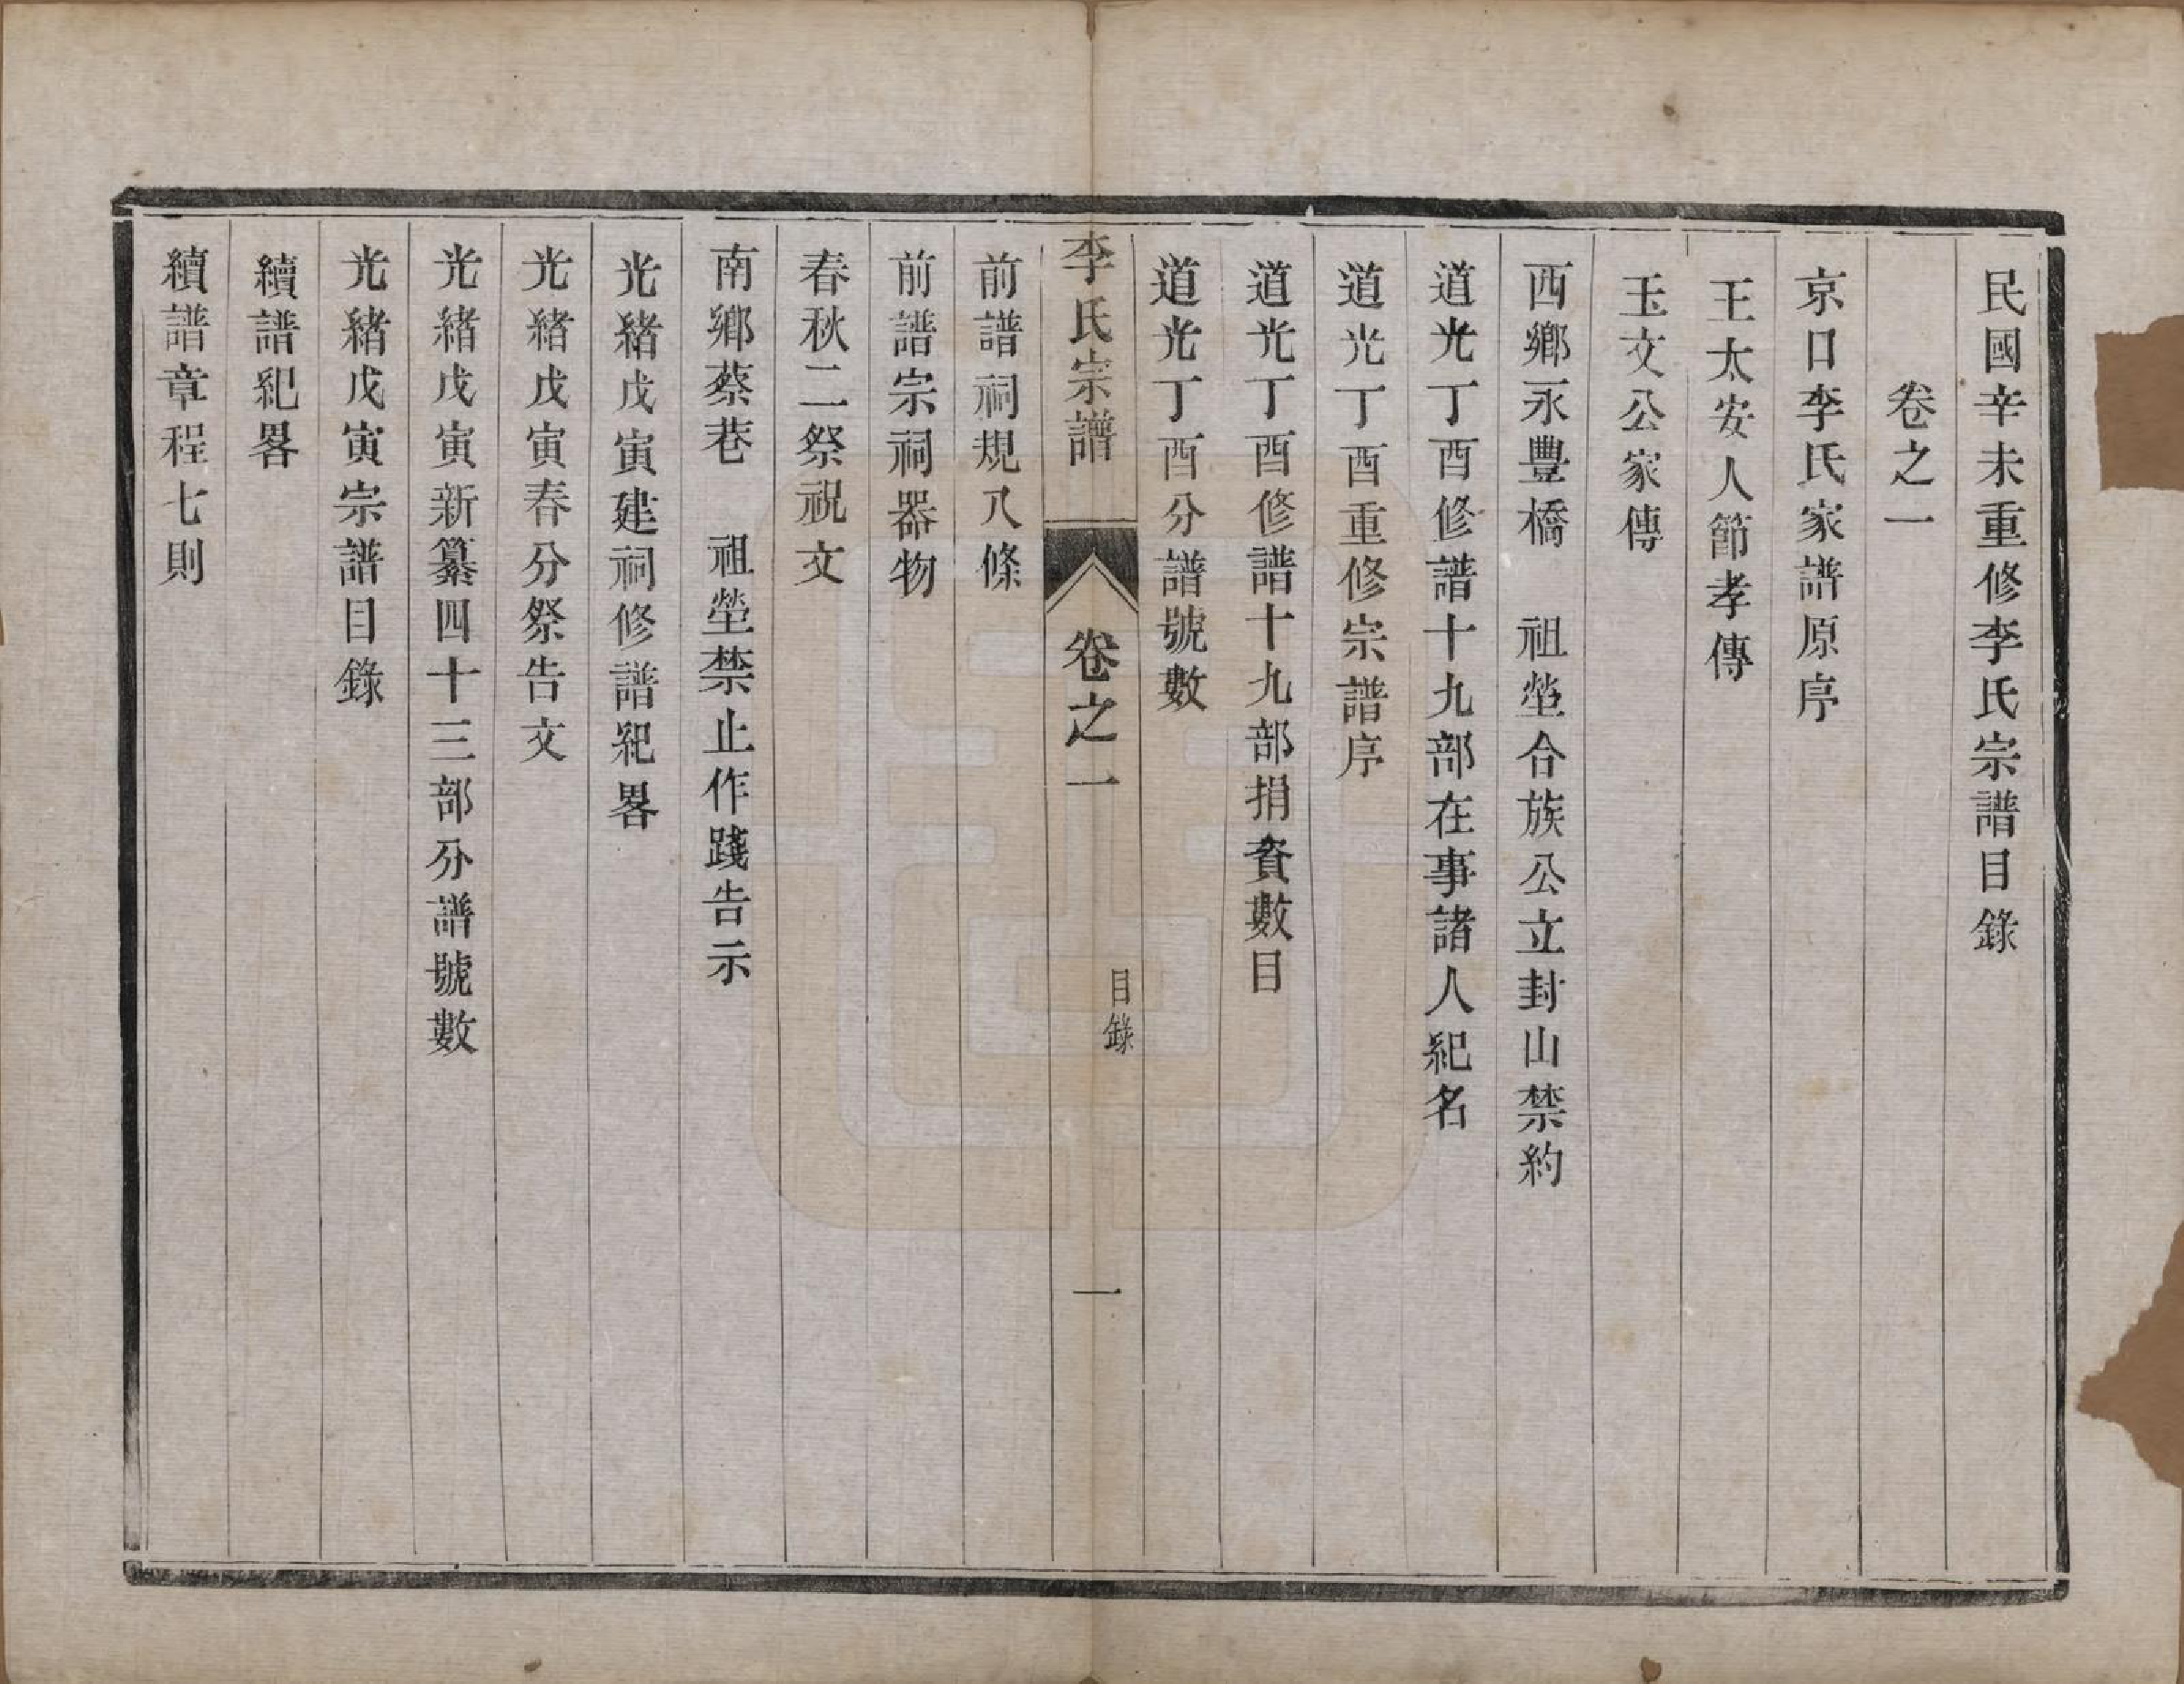 民國辛未重修李氏宗譜目錄
卷之一
京口李氏家譜原序
王太安人節孝傳
玉文公家傳
西鄉永豐橋　祖塋合族公立封山禁約
道光丁酉修譜十九部在事諸人紀名
道光丁酉重修宗譜序
道光丁酉修譜十九部捐資數目
道光丁酉分譜號數
李氏宗譜
卷之一
目錄
一
前譜祠規八條
前譜宗祠器物
春秋二祭祝文
南鄉蔡巷　祖塋禁止作踐告示
光緒戊寅建祠修譜紀畧
光緒戊寅春分祭告文
光緒戊寅新纂四十三部分譜號數
光緒戊寅宗譜目錄
續譜紀畧
續譜章程七則